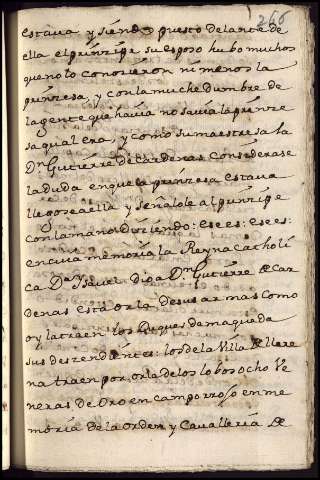 266
estava y siendo puesto delante de
ella el prinçipe su esposo hubo muchos
que no lo conoçieron ni menos la
prinçesa, y con la muchedumbre de
la gente que havia no savia la prinçe
sa qual era, y como su maestresala
Dn Gutierre de Cardenas considerase
la duda en que la prinçesa estava
llegose a ella y señalole al prinçipe
con la mano diziendo: esees: esees:
en cuia memoria la Reyna Catholi
ca Da Ysavel dio a Dn Gutierre de Car
denas esta orla de sus armas como
oy la traen los Duques de maqueda
sus deszendientes: los de la Villa de llere
na traen por orla de los lobos ocho Ve
neras de Oro en campo rroxo en me
moria de la orden y Cavalleria de